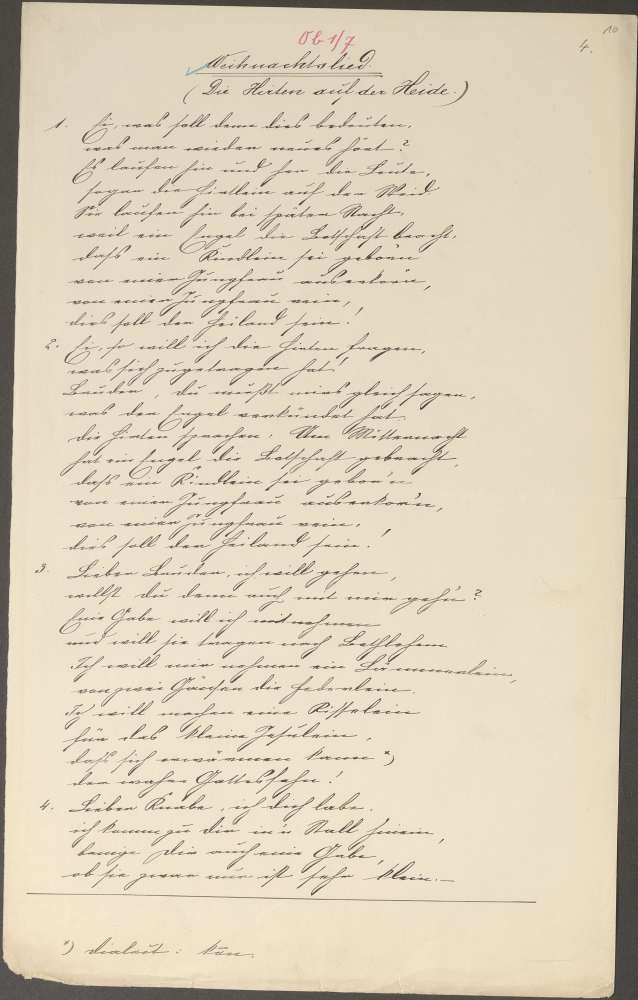 10
Ob 1/7
4.
Weihnachtslied.
(Die Hirten auf der Heide.)
1. Ei, was soll denn dies bedeuten,
was man wieder neues hört?
Es laufen hin und her die Leute,
sogar die Hirtlein auf der Weid
Sie laufen hin bei später Nacht,
weil ein Engel die Botschaft bracht,
daß ein Kindlein sei gebor'n
von einer Jungfrau auserkor'n,
von einer Jungfrau rein,
dies soll der Heiland sein!
2. Ei, so will ich die Hirten fragen,
was sich zugetragen hat!
Bruder, du mußt mirs gleich sagen,
was der Engel verkündet hat.
die Hirten sprachen: Um Mitternacht
hat ein Engel die Botschaft gebracht,
daß ein Kindlein sei gebor'n
von einer Jungfrau auserkor'n,
von einer Jungfrau rein,
dies soll der Heiland sein!
3. Lieber Bruder, ich will gehen,
willst du denn auch mit mir gehn?
Eine Gabe will ich mitnehmen
und will sie tragen nach Bethlehem
Ich will mir nehmen ein Lämmerlein,
von zwei Gänsen die Federlein.
Ich will machen eine Kisselein
für das kleine Jesulein,
daß sich erwärmen kann *)
der wahre Gottessohn!
4. Lieber Knabe, ich dich labe,
ich komm zu dir in'n Stall hinein,
bringe dir auch eine Gabe,
ob sie zwar nur ist sehr klein. —
*) Dialect: kon.